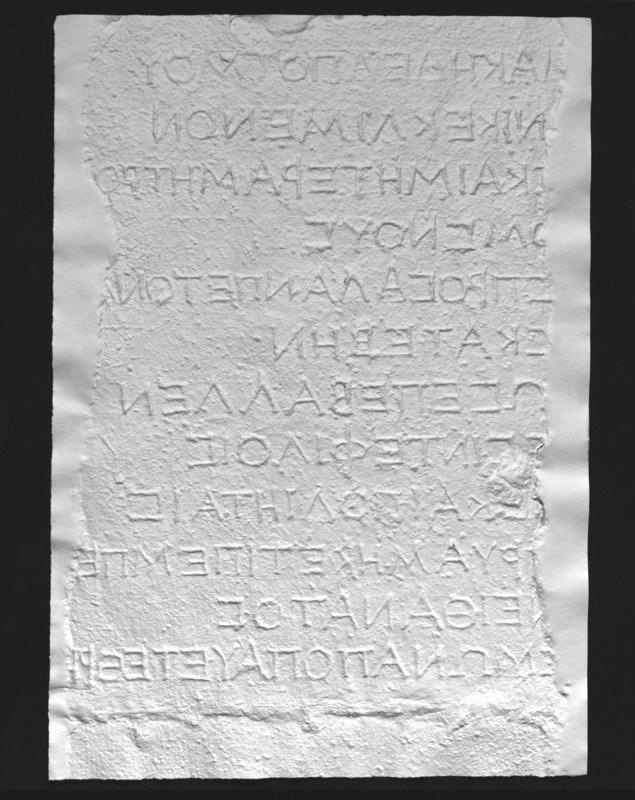 ΑΚΗΔΕΑΠΟΤΜΟΥ
ΝΙΚΕΚΛΙΜΕΝΟΝ
ΣΚΑΙΜΗΤΕΡΑΜΗΤΡΟ
ΟΜΕΝΟΥΣ
ΣΠΡΟΣΑΛΑΝΠΕΤΟΝ
ΣΚΑΤΕΒΗΝ
ΩΣΕΠΕΒΑΛΛΕΝ
ΣΙΝΤΕΦΙΛΟΙΣ
ΣΚΑΙΠΟΛΙΗΤΑΙΣ
ΡΥΑΜΗΚΕΤΙΠΕΜΠΕ
ΕΙΘΑΝΑΤΟΣ
ΚΩΝΑΠΟΠΑΥΕΤΕΘΡΗ